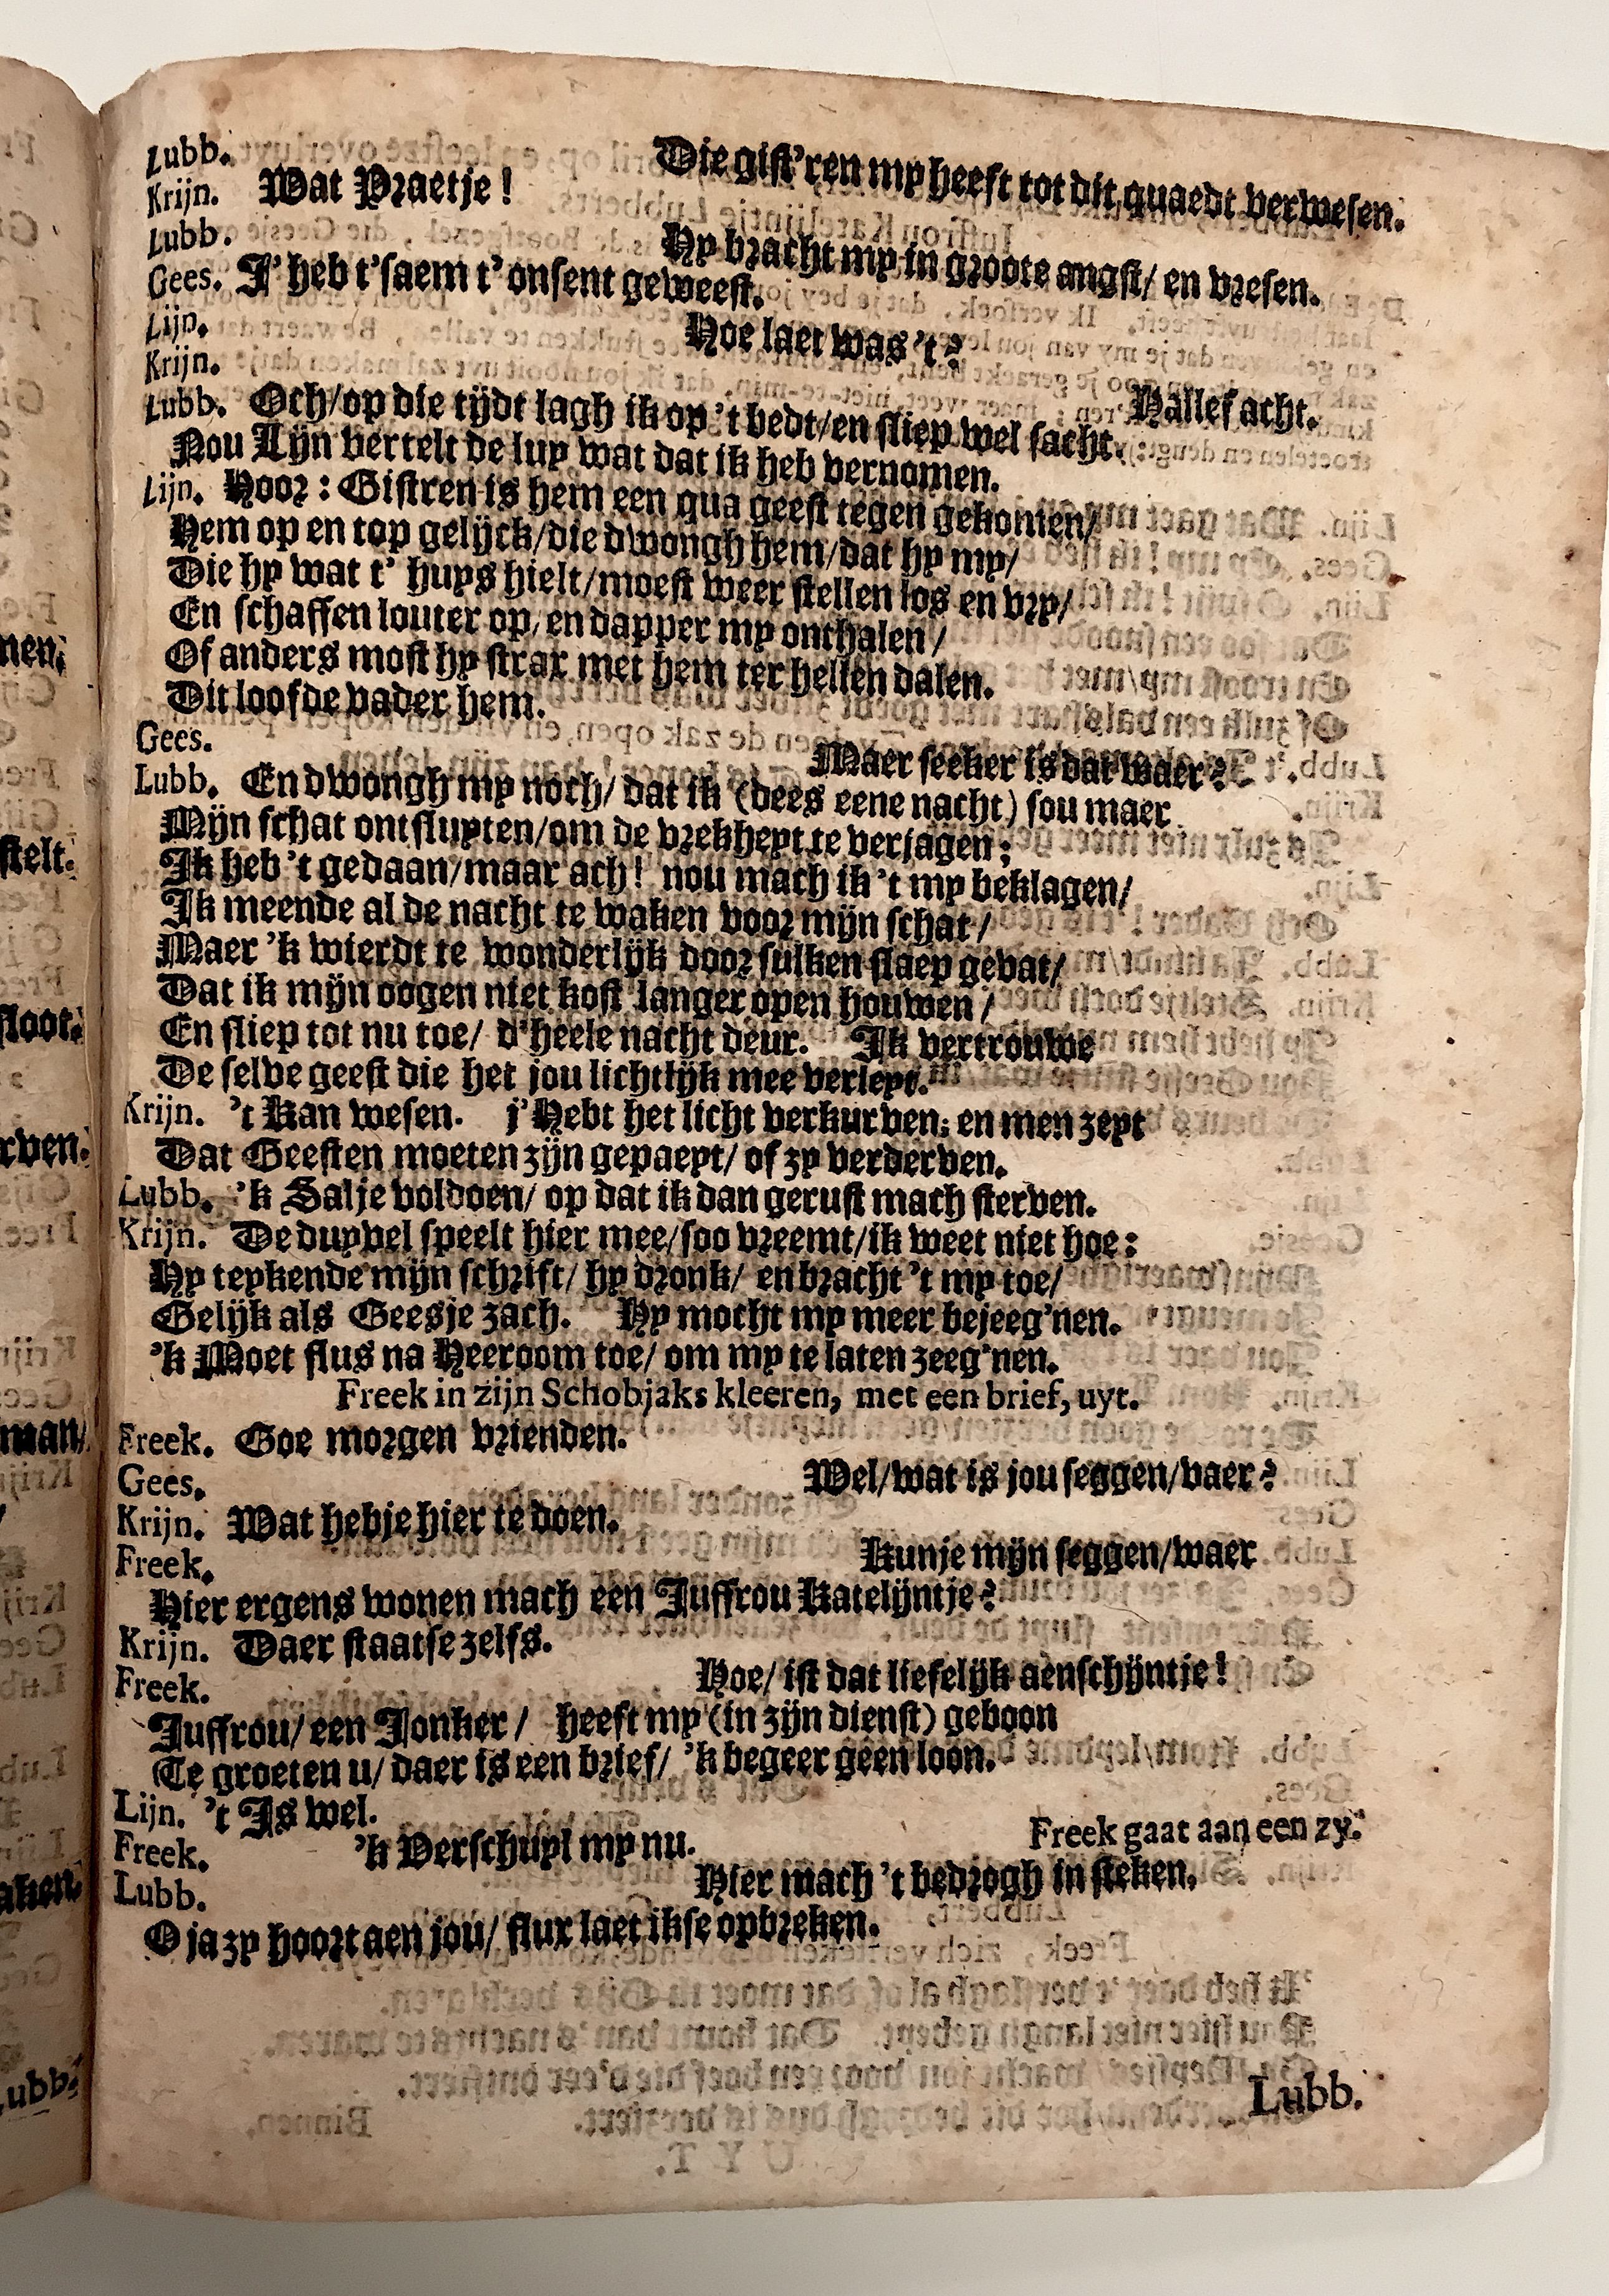 Lubb. Die gist'ren my heeft tot dit quaedt verwesen.
Krijn. Wat Praetje!
Lubb. Hy bracht my in groote angst/ en vresen.
Gees. J' heb t'saem t' onsent geweest.
Lijn. Hoe laet was 't?
Krijn. Hallef acht.
Lubb. Och/op die tijdt lagh ik op 't bedt/en sliep wel sacht.
Nou Lijn vertelt de luy wat dat ik heb vernomen.
Lijn. Hoor: Gistren is hem een qua geest tegen gekomen/
Hem op en top gelijck/die dwongh hem/dat hy my/
Die hy wat t' huys hielt/moest weer stellen los en vry/
En schaffen louter op/en dapper my onthalen/
Of anders most hy strax met hem ter hellen dalen.
Dit loofde vader hem.
Gees. Maer seeker is dat waer?
Lubb. En dwongh my noch/ dat ik (dees eene nacht) sou maer
Mijn schat ontsluyten/om de vrekheyt te verjagen;
Ik heb 't gedaan/maar ach! nou mach ik 't my beklagen/
Ik meende al de nacht te waken voor mijn schat/
Maer 'k wierdt te wonderlijk door sulken slaep gevat/
Dat ik mijn oogen niet kost langer open houwen/
En sliep tot nu toe/ d'heele nacht deur. Ik vertrouwe
De selve geest die het jou lichtlijk mee verleyt.
Krijn. 't Kan wesen. j'Hebt het licht verkurven; en men zeyt
Dat Geesten moeten zijn gepaeyt/ of zy verderven.
Lubb. 'k Sal je voldoen/ op dat ik dan gerust mach sterven.
Krijn. De duyvel speelt hier mee/soo vreemt/ik weet niet hoe:
Hy teykende mijn schrift/ hy dronk/ en bracht 't my toe/
Gelijk als Geesje zach. Hy mocht my meer bejeeg'nen.
'k Moet flus na Heeroom toe/ om my te laten zeeg'nen.
Freek in zijn Schobjaks kleeren, met een brief, uyt.
Freek. Goe morgen vrienden.
Gees. Wel/wat is jou seggen/vaer?
Krijn. Wat hebje hier te doen.
Freek. Kunje mijn seggen/waer
Hier ergens wonen mach een Juffrou Katelijntje?
Krijn. Daer staatse zelfs.
Freek. Hoe/ ist dat liefelijk aenschijntje!
Juffrou/ een Jonker/ heeft my (in zijn dienst) geboon
Te groeten u/ daer is een brief/ 'k begeer geen loon.
Lijn. 't Is wel.
Freek gaat aan een zy.
Freek. 'k Verschuyl my nu.
Lubb. Hier mach 't bedrogh in steken,
O ja zy hoort aen jou/ flux laet ikse opbreken.
Lubb.